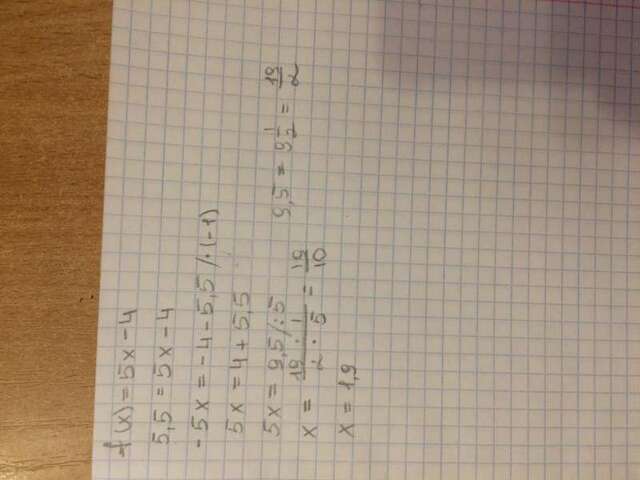 f(x) = 5x - 4
5,5 = 5x - 4
-5x = -4 - 5,5 /·(-1)
5x = 4 + 5,5
5x = 9,5 /:5
9,5 = 9 1/2 = 19/2
x = 19 · 1 / 2 · 5 = 19/10
x = 1,9